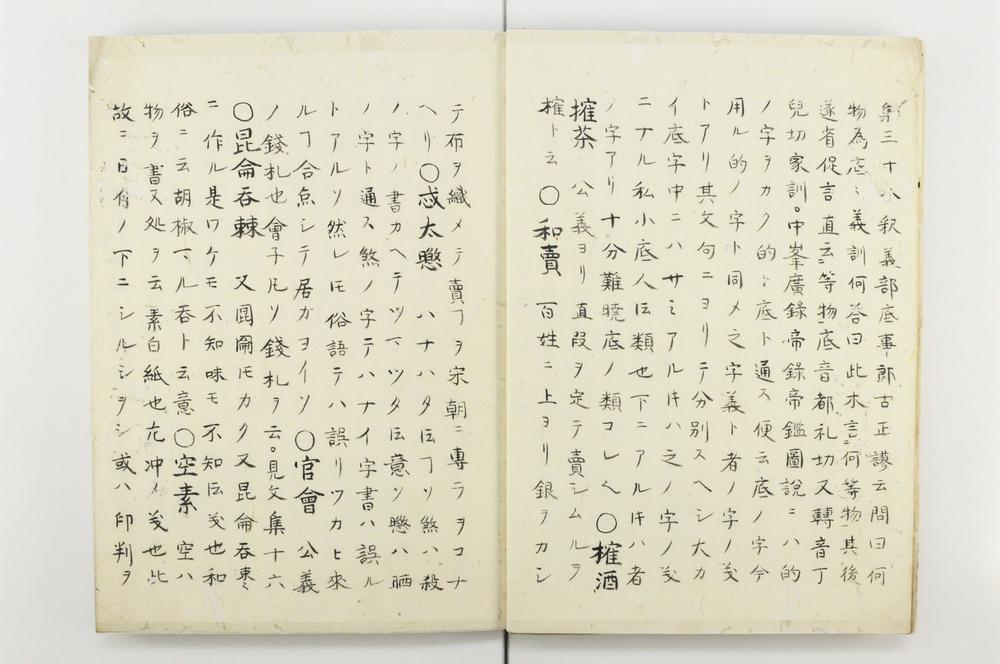 集三十八釈義部底事郎古正謬云問曰何
物為底〻義訓何答曰此木言何等物其後
遂省促言直云等物底音都礼切又轉音丁
兒切家訓。中峯廣錄帝錄帝鑑圖說ニハ的
ノ字ヲカク的ト底ト通ス便云底ノ字今
用ル的ノ字ト同メ之字義ト者ノ字ノ义
トアリ其文句ニヨリテ分別スヘシ大カ
イ底字中ニハサミアルキハ之ノ字ノ义
ニナル私小底人𪜈類也下ニアルキハ者
ノ字アリ十分難曉底ノ類コレヘ〇搉酒
搉茶 公義ヨリ直段ヲ定テ賣シムルヲ
搉ト云〇和賣 百姓ニ上ヨリ銀ヲカシ
テ布ヲ織メテ賣ヿヲ宋朝ニ專ラヲコナ
ヘリ〇忒太懸 ハナハタ𪜈ヿソ煞ハ殺
ノ字ノ書カヘテツマツタ𪜈意ソ懸ハ晒
ノ字ト通ス煞ノ字テハナイ字書ハ誤ル
トアルソ然レ𪜈俗語テハ誤リツカヒ來
ルヿ合点シテ居ガヨイソ〇官會 公義
ノ錢札也會子𪜈ソ錢札ヲ云。見文集十六
〇昆侖吞棘 又圓圇𪜈カク又昆侖吞棗
ニ作ル是ワケモ不知味モ不知𪜈义也和
俗ニ云胡椒丸ル吞ト云意〇空素 空ハ
物ヲ書又処ヲ云素白紙也尢冲〆义也此
故ニ日有ノ下ニシルシヲシ或ハ印判ヲ